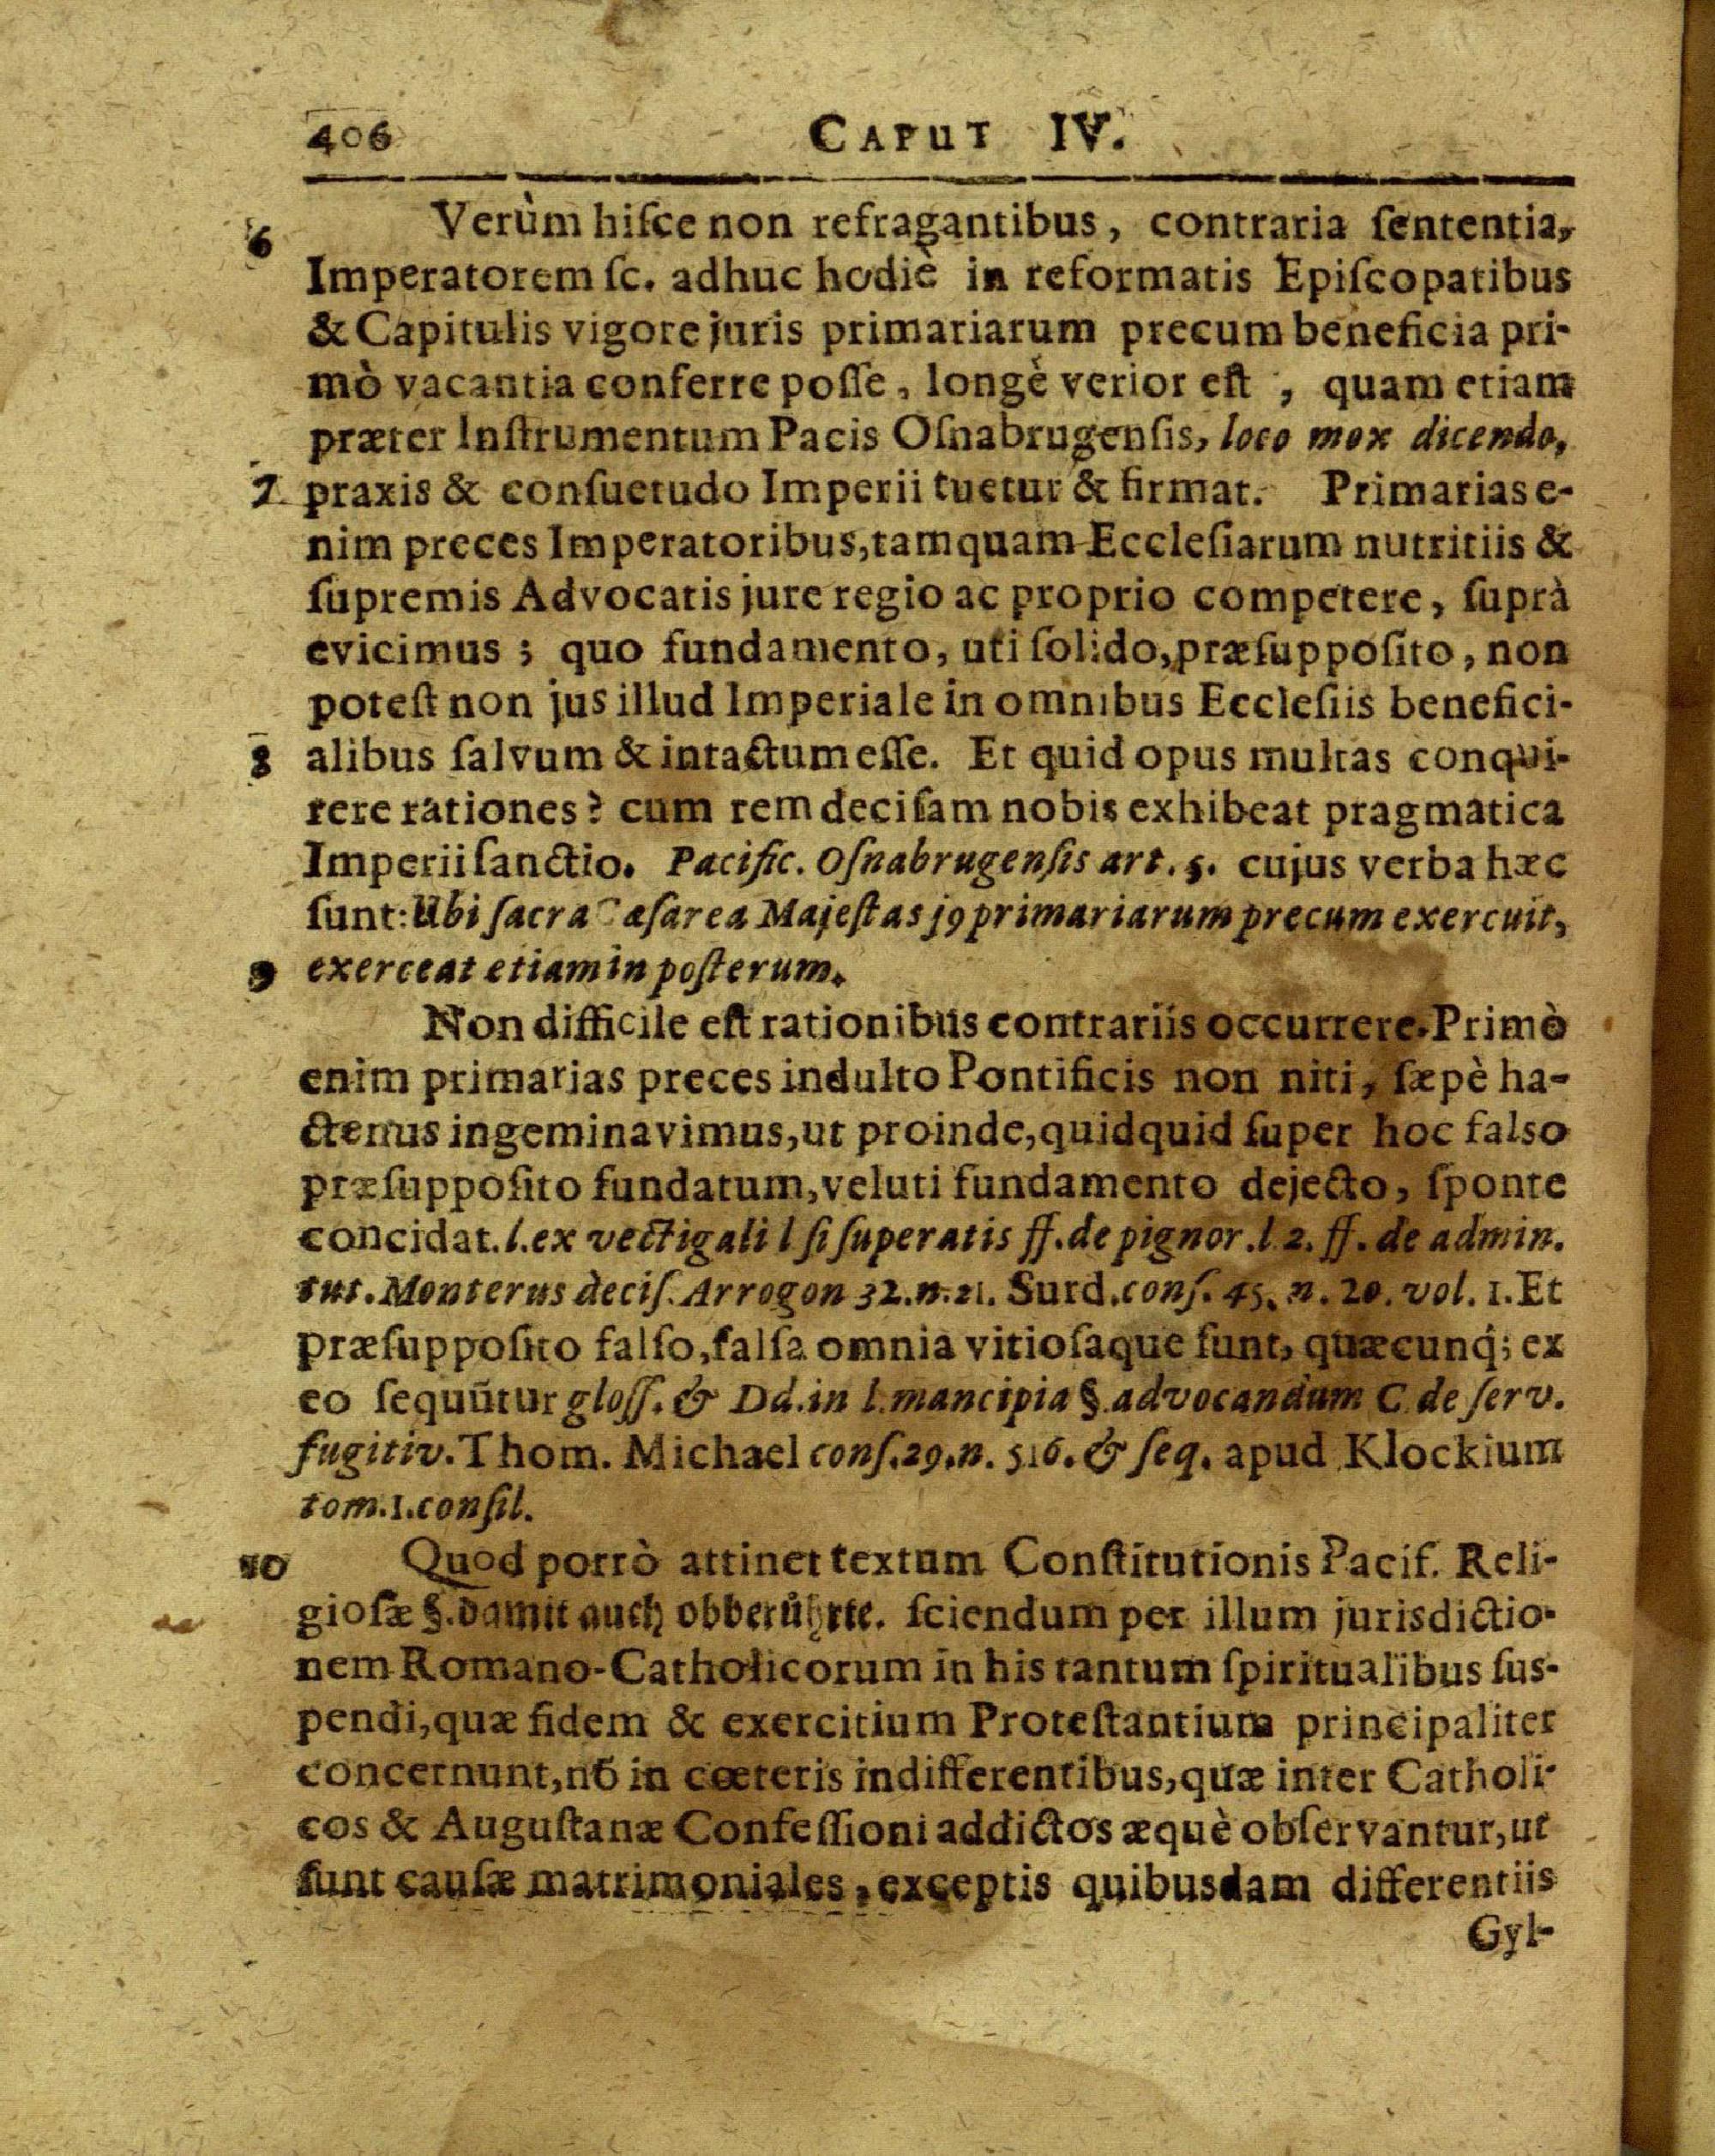 406 CAPUT IV.
6 Verùm hiſce non refragantibus, contraria ſententia,
Imperatorem ſc. adhuc hodiè in reformatis Epiſcopatibus
& Capitulis vigore juris primariarum precum beneficia pri-
mò vacantia conferre poſſe, longè verior eſt, quam etiam
præter Inſtrumentum Pacis Oſnabrugenſis, loco mox dicendo,
7 praxis & conſuetudo Imperii tuetur & firmat. Primarias e-
nim preces Imperatoribus, tamquam Eccleſiarum nutritiis &
ſupremis Advocatis jure regio ac proprio competere, ſuprà
evicimus; quo fundamento, uti ſolido, præſuppoſito, non
poteſt non jus illud Imperiale in omnibus Eccleſiis benefici-
8 alibus ſalvum & intactum eſſe. Et quid opus multas conqui-
rere rationes? cum rem deciſam nobis exhibeat pragmatica
Imperii ſanctio. Pacific. Oſnabrugenſis art. 5. cujus verba hæc
ſunt: Ubi ſacra Cæſarea Majeſtas jꝰ primariarum precum exercuit,
9 exerceat etiam in poſterum.
Non difficile eſt rationibus contrariis occurrere. Primò
enim primarias preces indulto Pontificis non niti, ſæpè ha-
ctenus ingeminavimus, ut proinde, quidquid ſuper hoc falso
præſuppoſito fundatum, veluti fundamento dejecto, ſponte
concidat. l. ex vectigali l ſi ſuperatis ff. de pignor. l. 2. ff. de admin.
tut. Monterus deciſ. Arrogon 32. n. 21. Surd. conſ. 45. n. 20. vol. 1. Et
præſuppoſito falſo, falſa omnia vitioſaque ſunt, quæcunq́; ex
eo ſequūtur gloſſ. & Dd. in l. mancipia §. advocandum C. de ſerv.
fugitiv. Thom. Michael conſ. 29. n. 516. & ſeq. apud Klockium
tom. 1. conſil.
10 Quod porrò attinet textum Conſtitutionis Pacif. Reli-
gioſæ §. damit auch obberůhrte. ſciendum per illum jurisdictio-
nem Romano-Catholicorum in his tantum ſpiritualibus ſus-
pendi, quæ fidem & exercitium Proteſtantium principaliter
concernunt, nō in cœteris indifferentibus, quæ inter Catholi-
cos & Auguſtanæ Confeſſioni addictos æquè obſervantur, ut
ſunt cauſæ matrimoniales, exceptis quibusdam differentiis
Gyl-